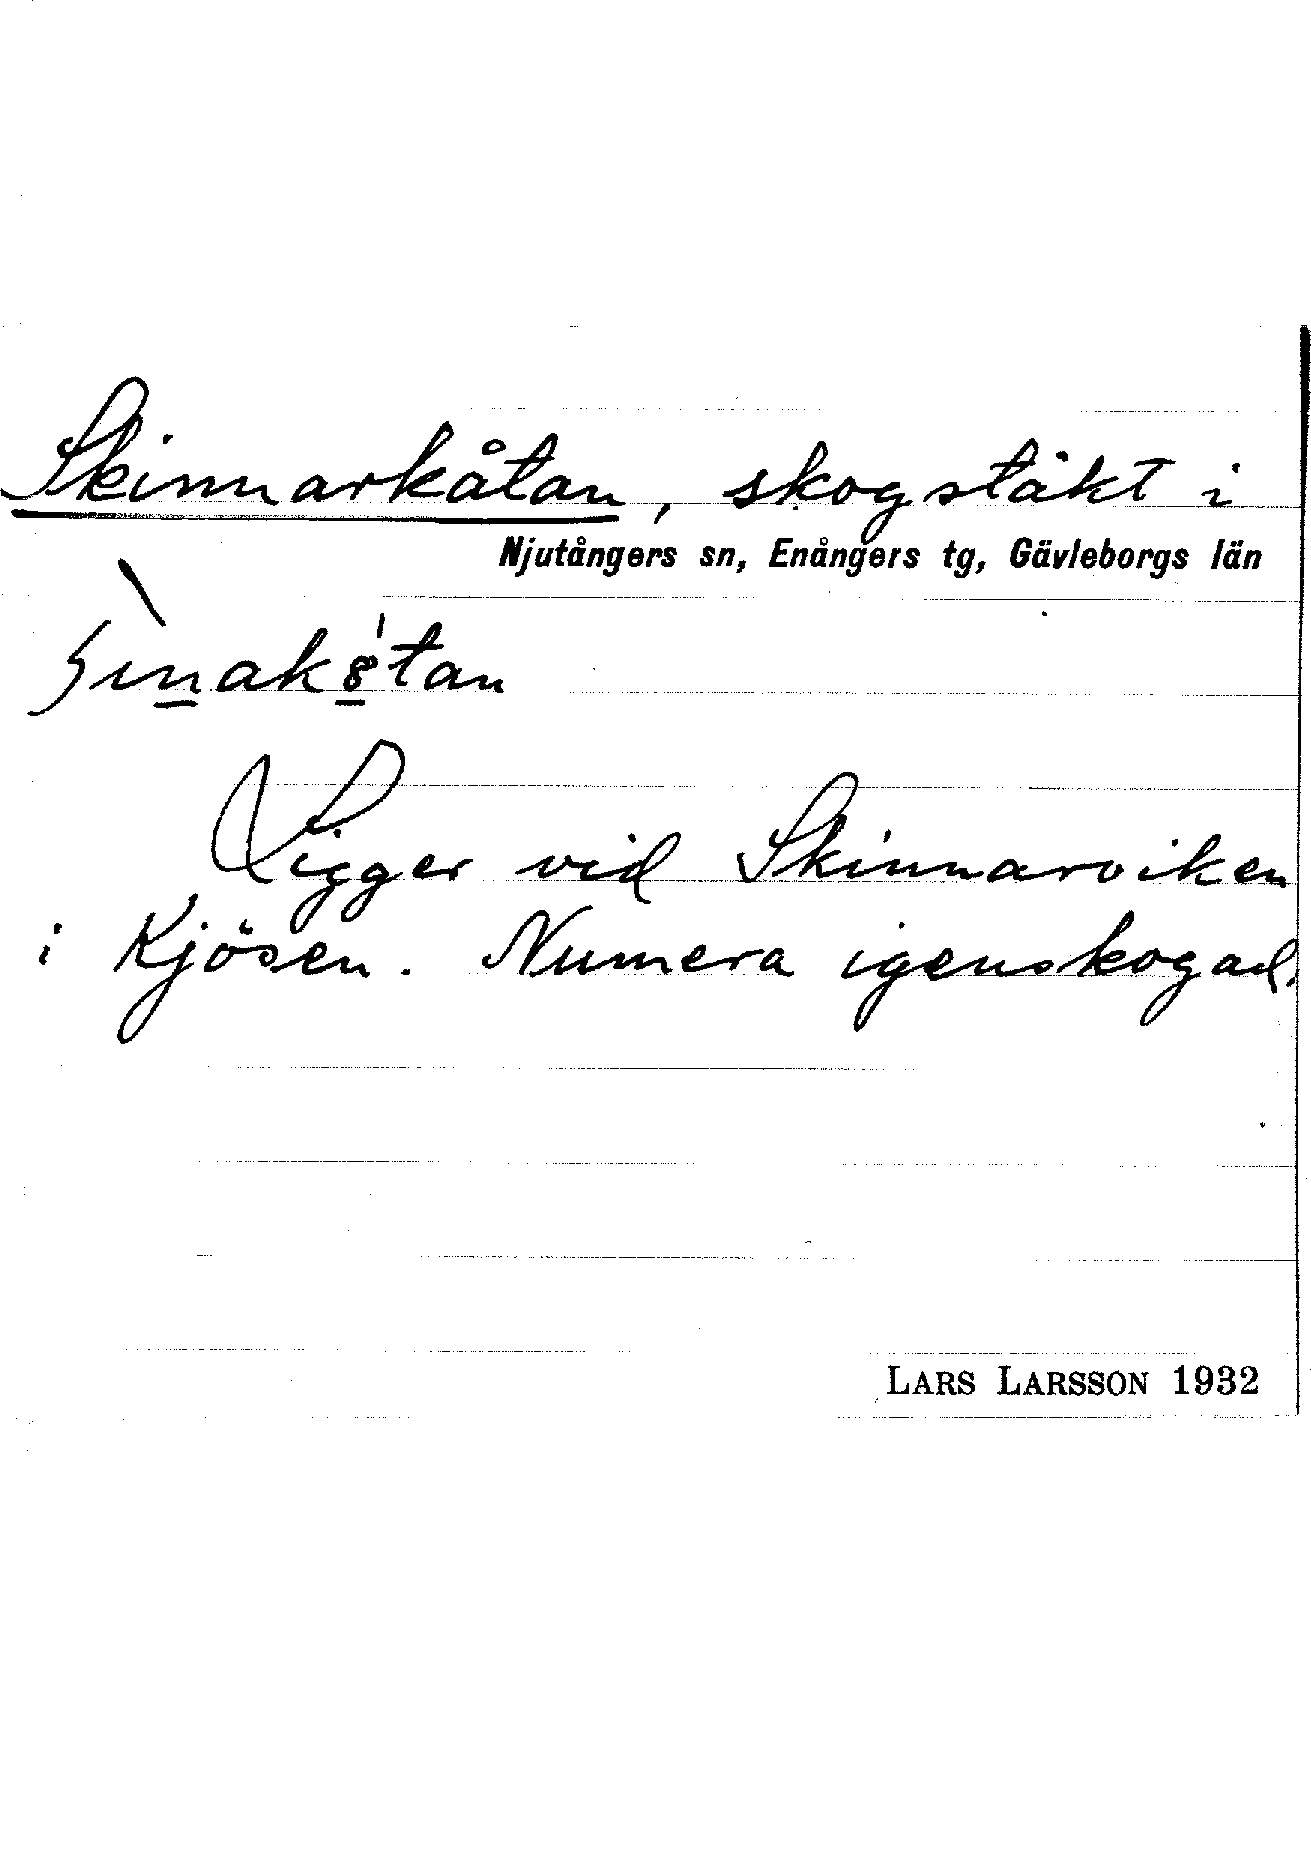 Skinnarkåtan, skogstäkt i
Njutångers sn, Enångers tg, Gävleborgs län
Ligger vid Skinnarviken
i Kjösen. Numera igenskogad.
LARS LARSSON 1932